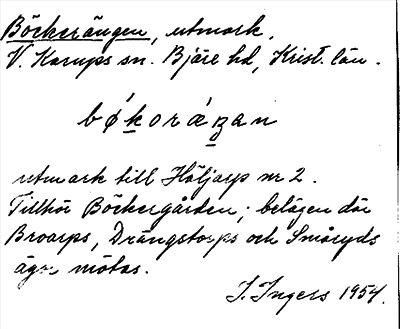 Böckerängen, utmark,
V. Karups sn. Bjäre hd, Krist. län.
bǿkoráŋan
utmark till Höljarp nr 2.
Tillhör Böckergården; belägen där
Broarps, Drängstorps och Småryds
ägor mötas.
I. Ingers 1954.